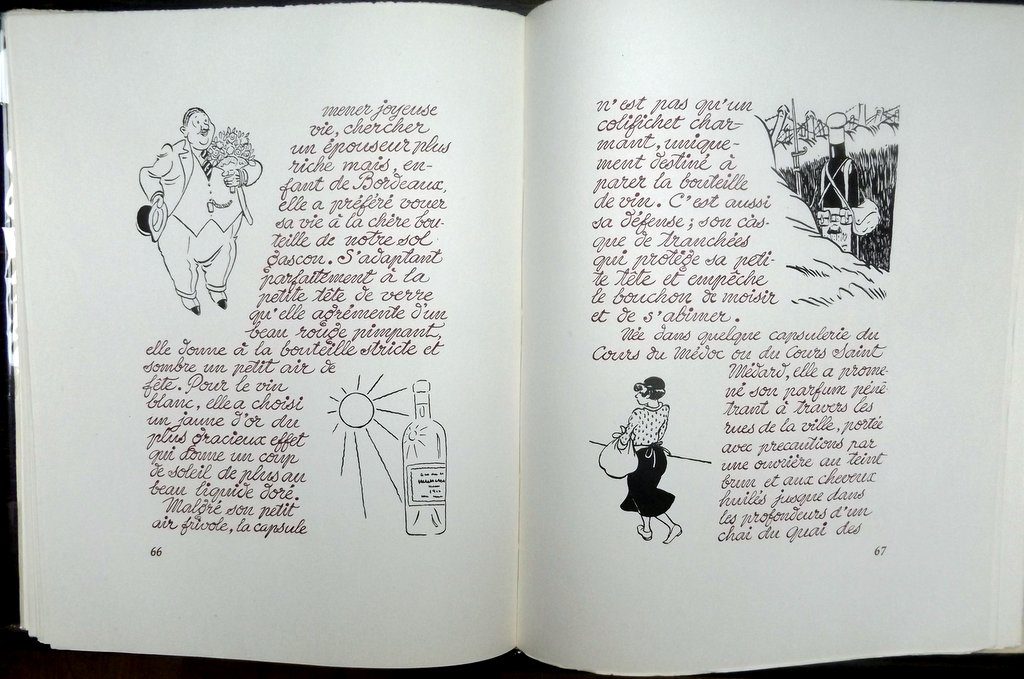 mener joyeuse
vie, chercher
un épouseur plus
riche mais, en-
fant de Bordeaux,
elle a préféré vouer
sa vie à la chère bou-
teille de notre sol
gascon. S'adaptant
parfaitement à la
petite tête de verre
qu'elle agrémente d'un
beau rouge pimpant,
elle donne à la bouteille stricte et
sombre un petit air de
fête. Pour le vin
blanc, elle a choisi
un jaune d'or du
plus gracieux effet
qui donne un coup
de soleil de plus au
beau liquide doré.
Malgré son petit
air frivole, la capsule
66
n'est pas qu'un
colifichet char-
mant, unique-
ment destiné à
parer la bouteille
de vin. C'est aussi
sa défense ; son cas-
que de tranchées
qui protège sa peti-
te tête et empêche
le bouchon de moisir
et de s'abimer.
Née dans quelque capsulerie du
Cours du Médoc ou du Cours Saint
Médard, elle a prome-
né son parfum péné-
trant à travers les
rues de la ville, portée
avec precautions par
une ouvrière au teint
brun et aux cheveux
huilés jusque dans
les profondeurs d'un
chai du quai des
67